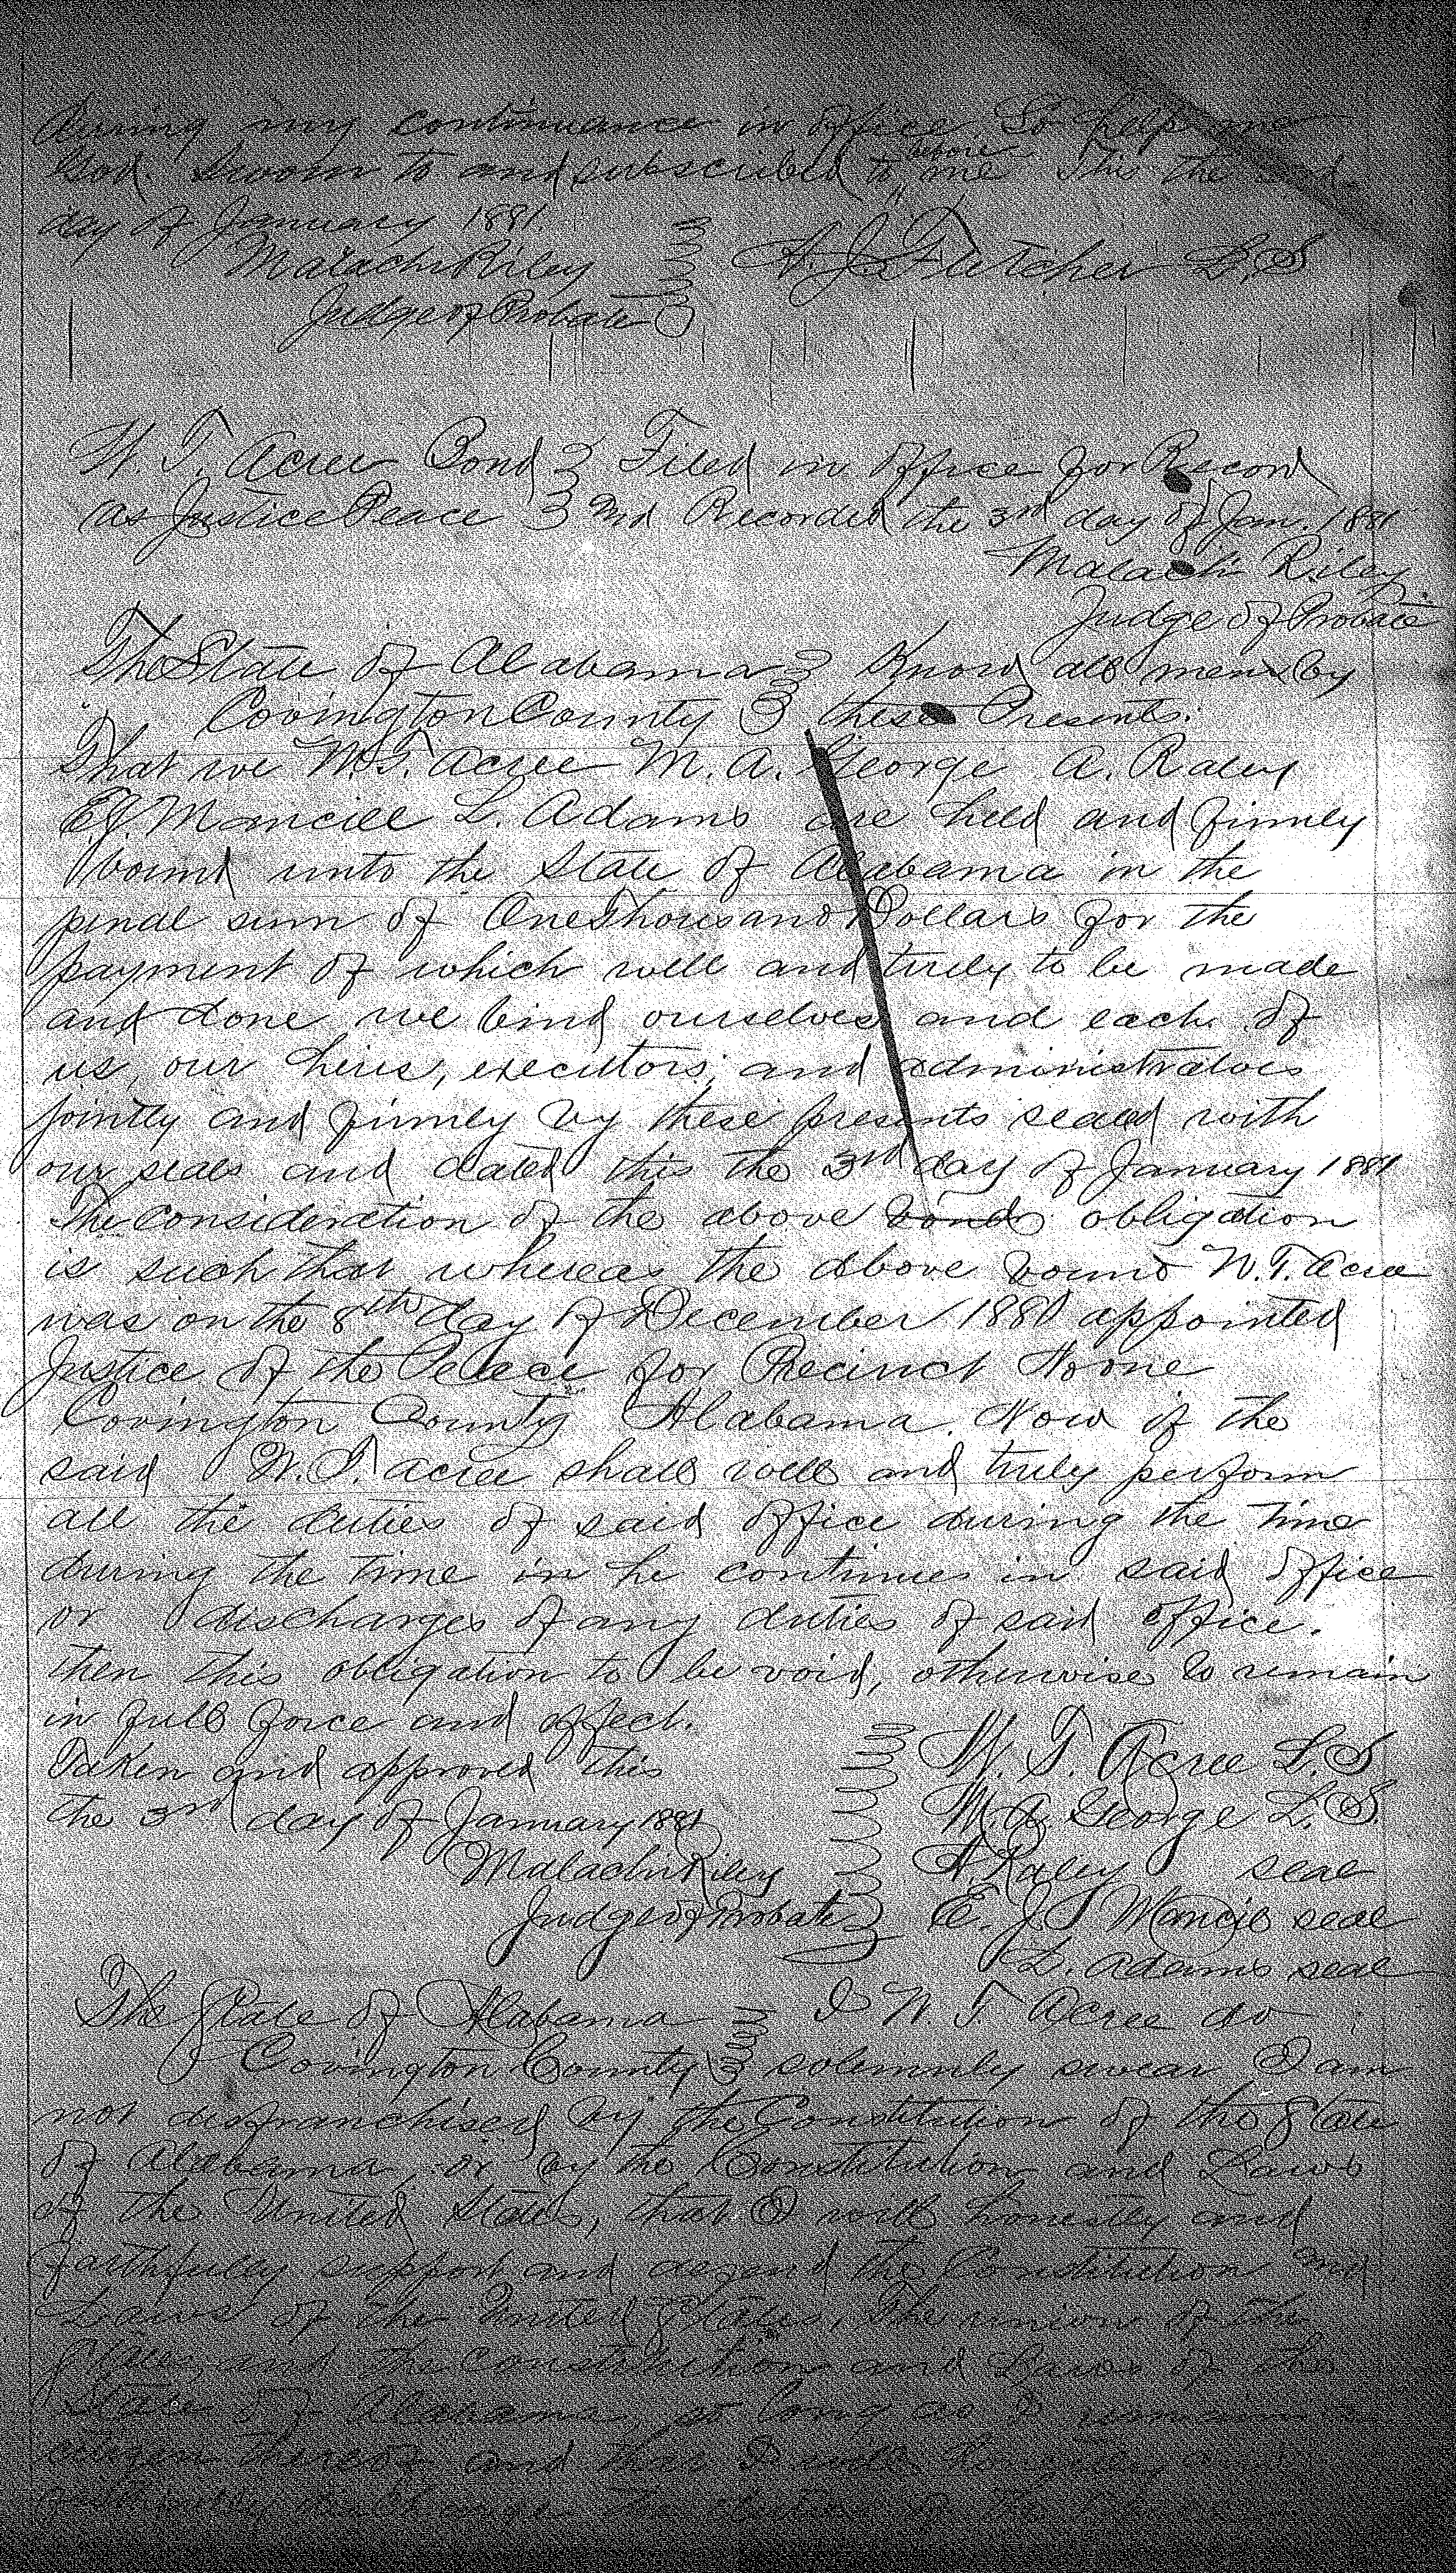 during my continuance in office. So help me
God. Sworn to and subscribed to before me this the
day of January 1881.
Malachi Riley A. J. Fletcher L.S
Judge of Probate
W. T. Acree Bond Filed in office for Record
as Justice Peace and Recorded the 3rd day of Jan. 1881
Malachi Riley
Judge of Probate
The State of Alabama Know all men by
Covington County these Presents.
That we W.T. Acree M. A. George A. Raley
E.J. Mancill L. Adams are held and firmley
bound unto the State of Alabama in the
penal sum of One Thousand Dollars for the
payment of which well and turely to be made
and done we bind ourselves and each of
us, our heirs, executors, and administratves
jointly and firmley by these presents sealed with
our seals and dated this the 3rd day of January 1881
The Consideration of the above bond obligation
is such that whereas the above bound W.T. Acree
was on the 8th day of December 1880 appointed
Justice of the Peace for Precinct No one
Covington County Alabama. Now if the
said W.T. Acree shall well and truly perform
all the duties of said office during the time
during the time in he continues in said office
or discharges of any duties of said office.
then this obligation to be void, otherwise to remain
in full force and effect.
Taken and approved this W. T. Acree L.S
the 3rd day of January 1881 M.A. George L.S.
Malachi Riley A. Raley seal
Judge of Probate E. J. Mancil seal
L. Adams seal
The State of Alabama I W. T. Acree do
Covington County solemnly swear I am
not disfranchised by the Constitution of the State
of Alabama, or by the Constitution and Laws
of the United States, that I will honestly and
faithfully support and defend the Constitution and
Laws of the United States, The union of the
States, and the Constitution and Laws of the
State of Alabama, so long as I remain
citizen thereof and that I will